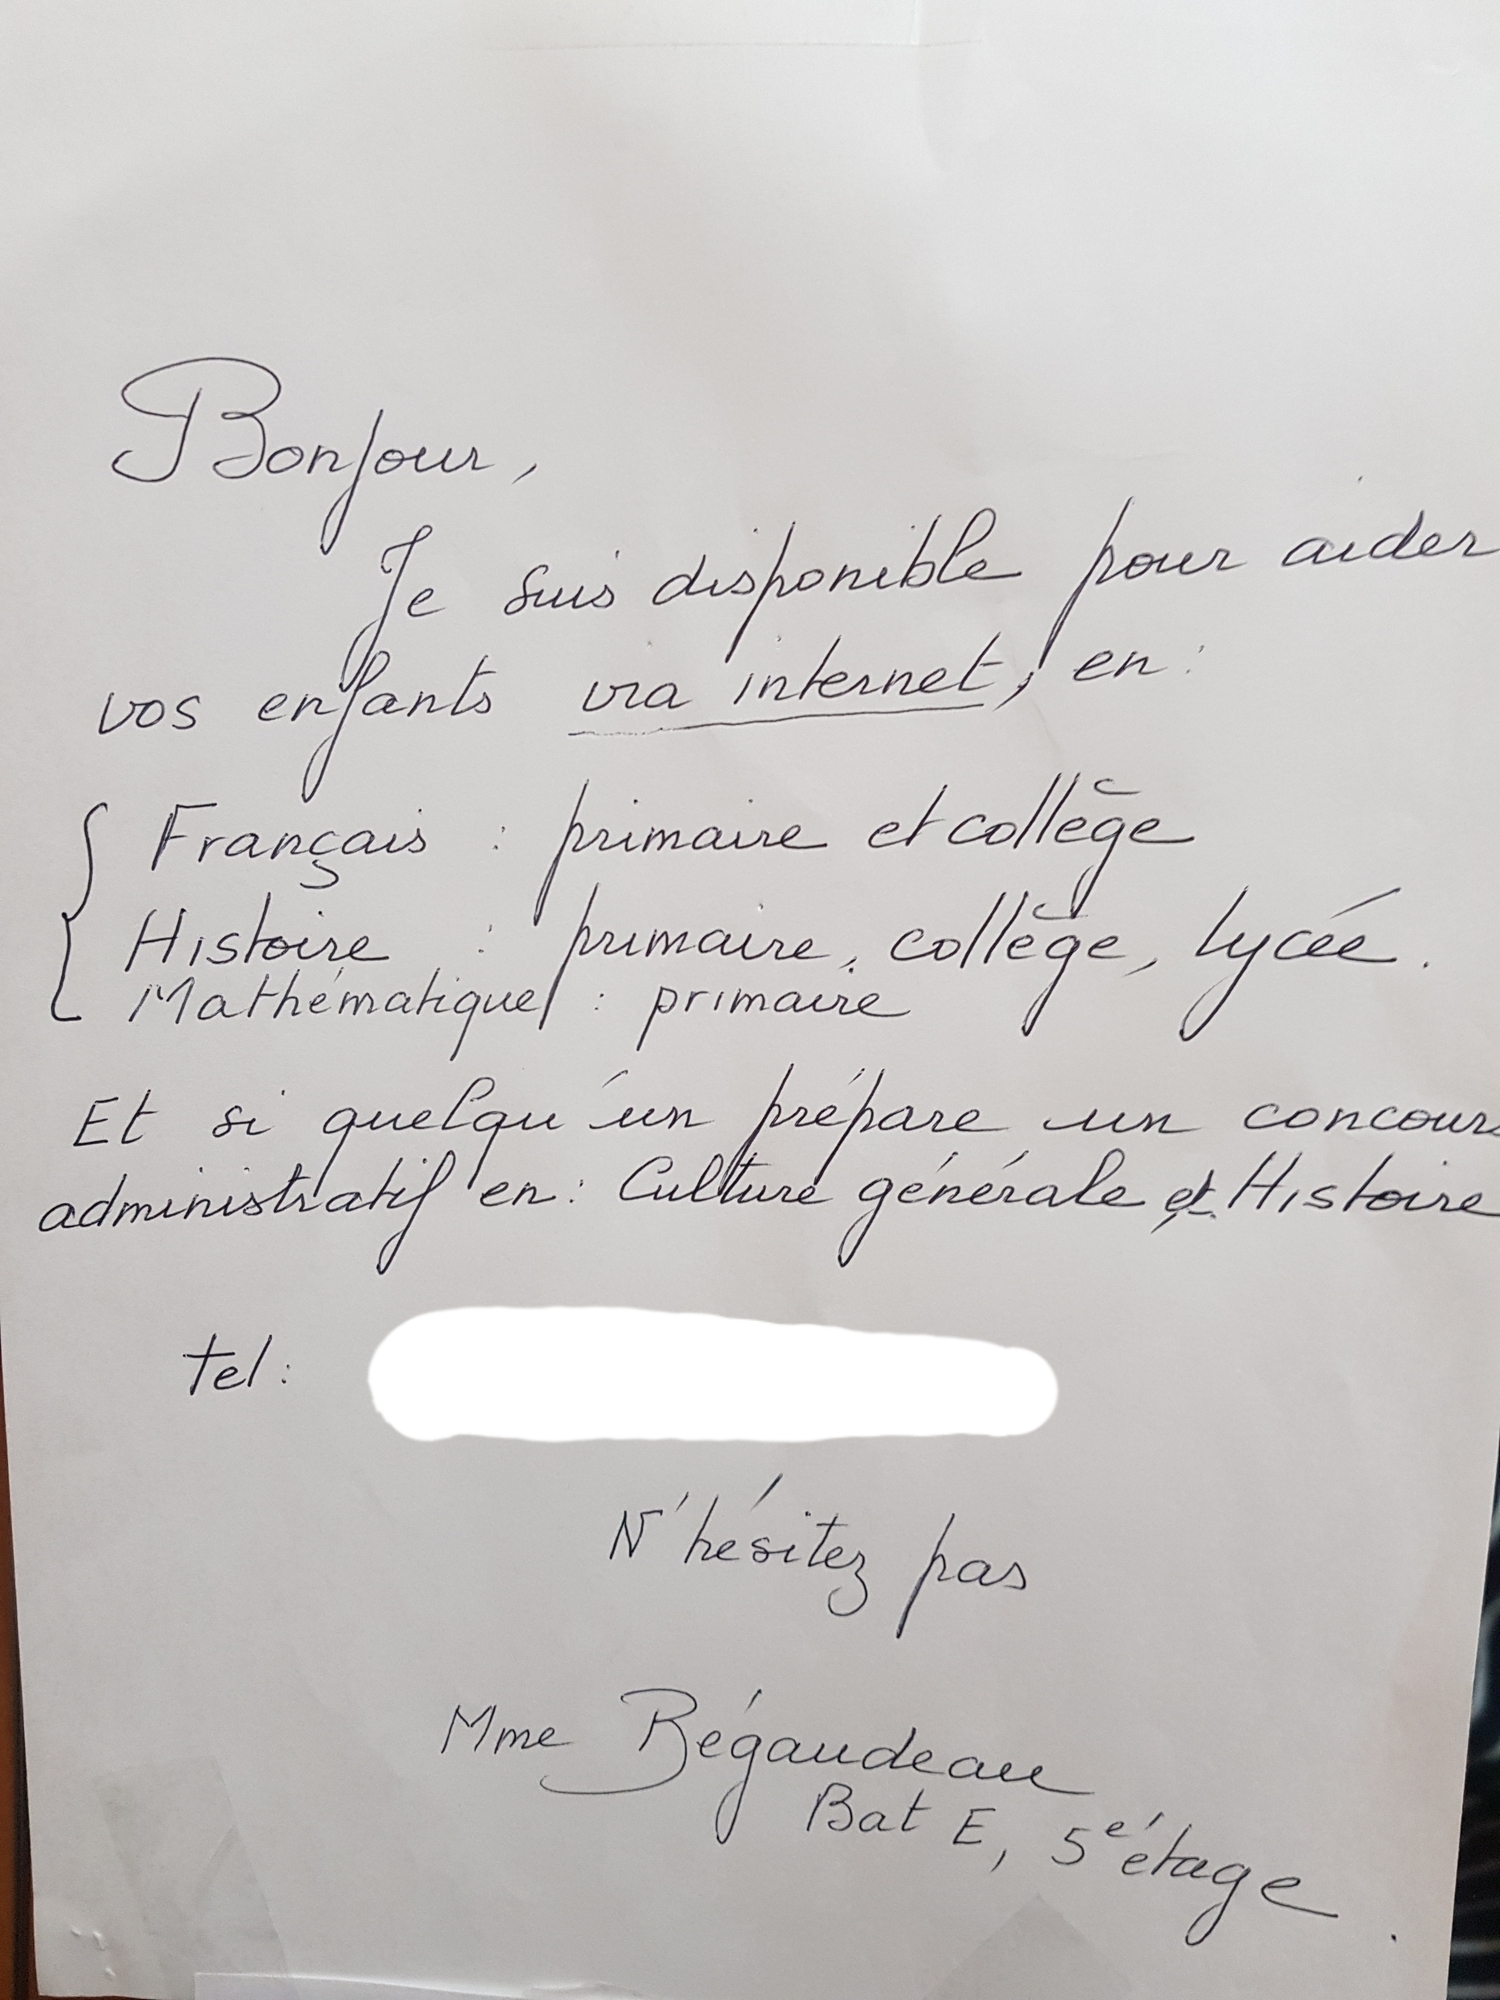 Bonjour,
Je suis disponible pour aider
vos enfants via internet, en :
Français : primaire et collège
Histoire : primaire, collège, lycée.
Mathématique : primaire
Et si quelqu'un prépare un concours
administratif en : Culture générale et Histoire
tel :
N'hésitez pas
Mme Bégaudeau
Bat E, 5e étage.